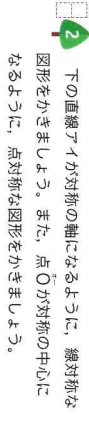 2 下の直線アイが対称の軸になるように，線対称な
図形をかきましょう。また，点Oが対称の中心に
なるように，点対称な図形をかきましょう。